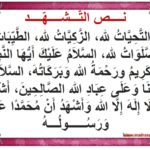 نص التشهد
التَّحِيَّاتُ لله، الزَّكِيَّاتُ لله، الطَّيِّبَاتُ
الصَّلَوَاتُ لله، السَّلاَمُ عَلَيْكَ أَيُّهَا النَّبِيُّ
الكَرِيمُ وَرَحْمَةُ الله وَبَرَكَاتُهُ، السَّلاَمُ
عَلَيْنَا وَعَلَى عِبَادِ الله الصَّالِحِينَ، أَشْهَدُ
أَنْ لاَ إِلَهَ إِلاَّ الله وَأَشْهَدُ أَنَّ مُحَمَّدًا عَبْدُهُ
وَرَسُولُهُ